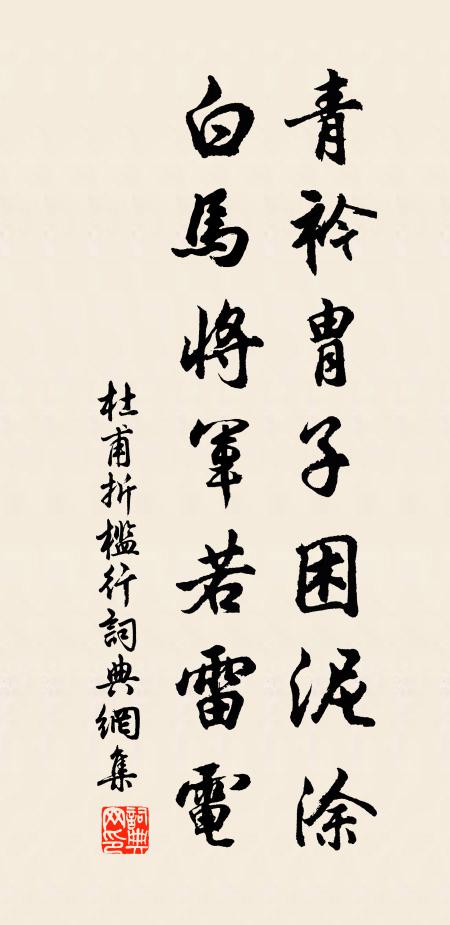 青衿冑子困泥涂
白馬將軍若雷電
杜甫折檻行詞典網集
詞典網印